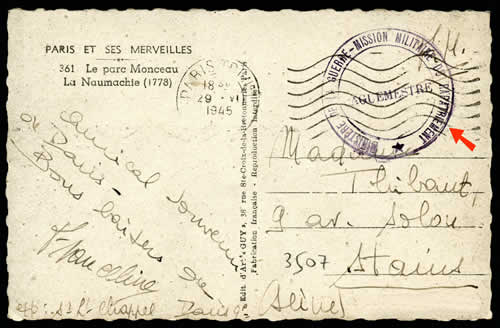 PARIS ET SES MERVEILLES
361 Le parc Monceau
La Naumachie (1778)
Amical souvenir
de Paris -
Bons baisers de
PARIS
18
29 VI
1945
GUERRE - MISSION MILITAIRE
RAPATRIEMENT
VAGUEMESTRE
F.M.
Edit. d'Art "GUY", 36 rue Ste-Croix-de-la-Bretonnerie, Paris
Fabrication française - Reproduction interdite
Thibaut
9 av. Solon
3507 Stains
(Seine)